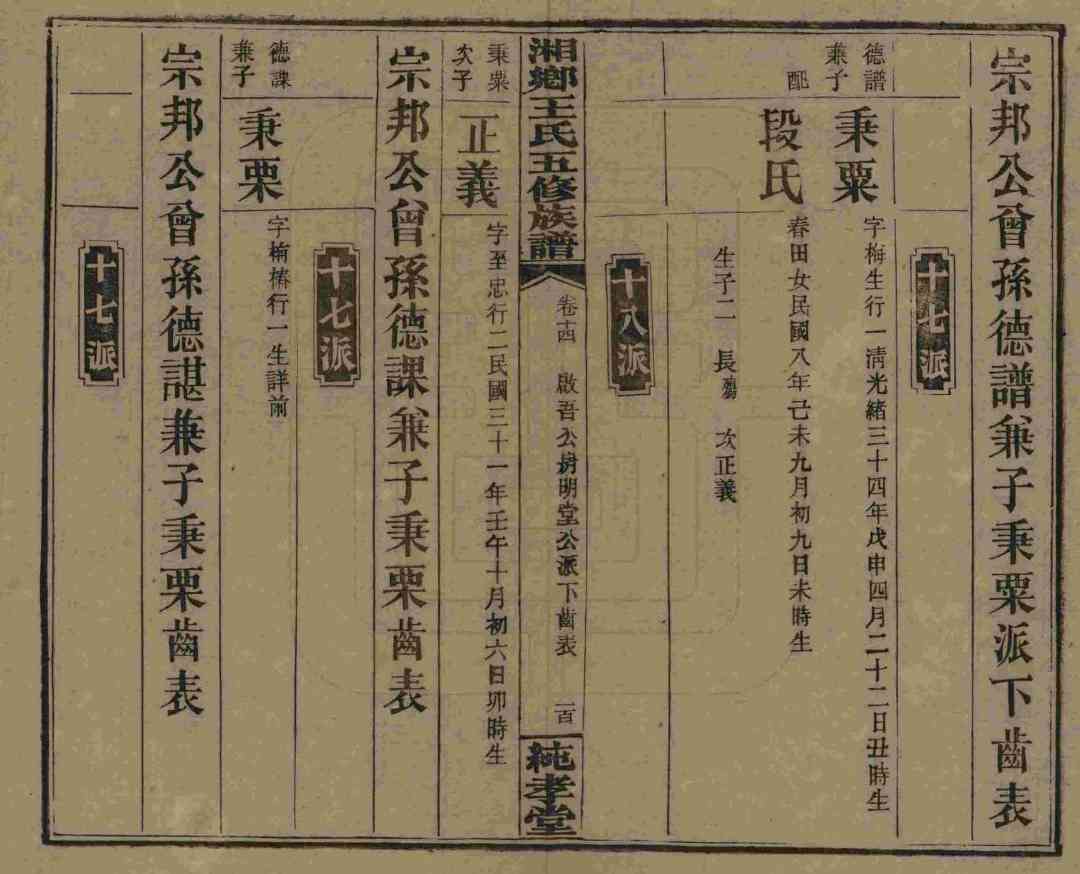 宗邦公曾孫德譜兼子秉粟派下齒表
十七派
德譜兼子
秉粟
字梅生行一清光緒三十四年戊申四月二十二日丑時生
配
段氏
春田女民國八年己未九月初九日未時生
生子二 長殤 次正義
十八派
湘鄉王氏五修族譜
卷十四 啟吾公房明堂公派下齒表 一百
純孝堂
秉粟次子
正義
字至忠行二民國三十一年壬午十月初六日卯時生
宗邦公曾孫德課兼子秉栗齒表
十七派
德課兼子
秉栗
字楠椿行一生詳前
宗邦公曾孫德諶兼子秉栗齒表
十七派